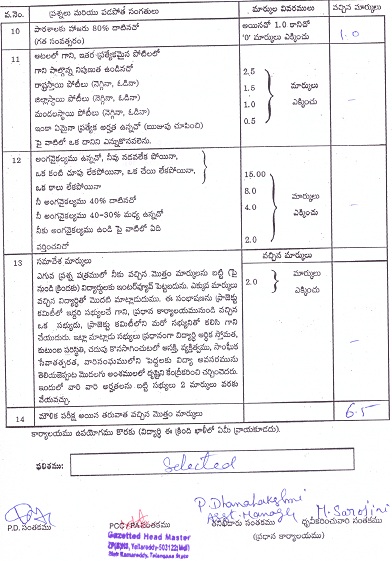 వ.నెం. ప్రశ్నలు మరియు పడవోత సంగతులు మార్కుల వివరములు వచ్చిన మార్కులు
10 పాఠశాలకు హాజరు 80% దాటినచో అయినచో 1.0 కానిచో 1.0
(గత సంవత్సరం) '0' మార్కులు ఎక్కించు
11 ఆటలలో గాని, ఇతర ప్రత్యేకమైన పోటీలలో
గాని పాల్గొన్న నిపుణత ఉండినచో 2.5
రాష్ట్రస్థాయి పోటీలు (నెగ్గినా, ఓడినా) 1.5 మార్కులు
జిల్లాస్థాయి పోటీలు (నెగ్గినా, ఓడినా) 1.0 ఎక్కించు
మండలస్థాయి పోటీలు (నెగ్గినా, ఓడినా) 0.5
ఇంకా ఏమైనా ప్రత్యేక అర్హత ఉన్నచో (ఋజువు చూపించి)
పై వాటిలో ఒక దానిని ఎన్నుకొనవలెను.
12 అంగవైకల్యము ఉన్నచో, నీవు నడవలేక పోయినా,
ఒక కంటి చూపు లేకపోయినా, ఒక చేయి లేకపోయినా, 16.00
ఒక కాలు లేకపోయినా 8.0 మార్కులు
నీ అంగవైకల్యము 40% దాటినచో 4.0 ఎక్కించు
నీ అంగవైకల్యము 40-30% మధ్య ఉన్నచో
నీకు అంగవైకల్యము ఉండి పై వాటిలో ఏది 2.0
వర్తించనిచో
13 సమావేశ మార్కులు వచ్చిన మార్కులు
ఎగువ ప్రశ్న పత్రములో నీకు వచ్చిన మొత్తం మార్కులను బట్టి (పై 2.0 మార్కులు
నుండి క్రిందకు) విద్యార్థులకు ఇంటర్వ్యూస్ పెట్టబడును. ఎక్కువ మార్కులు ఎక్కించు
వచ్చిన విద్యార్థితో మొదటి మాట్లాడుదుము. ఈ సంభాషణను ప్రాజెక్టు
కమిటీలో ఇద్దరి సభ్యులచే గాని, ప్రధాన కార్యాలయమునుండి వచ్చిన
ఒక సభ్యుడు, ప్రాజెక్టు కమిటీలోని మరో సభ్యునితో కలిసి గాని
చేయుదురు. ఇట్లా మాట్లాడు సభ్యులు ప్రధానంగా విద్యార్థి ఆర్థిక స్తోమత,
కుటుంబ పరిస్థితి, చదువు కొనసాగించుటలో ఆసక్తి, వ్యక్తిత్వము, సాంఘీక
సేవాతత్పరత, వారిసంఘములోని పెద్దలకు విద్యా అవసరమును
తెలియజెప్పుట మొదలగు అంశములలో దృష్టిని కేంద్రీకరించి చర్చించెదరు.
ఇందులో వారి వారి అర్హతలను బట్టి సభ్యులు 2 మార్కులు వరకు
వేయవచ్చు.
14 మౌలిక పరీక్ష అయిన తరువాత వచ్చిన మొత్తం మార్కులు 6.5
కార్యాలయము ఉపయోగము కొరకు (విద్యార్థి ఈ క్రింది ఖాళీలో ఏమీ వ్రాయకూడదు).
ఫలితము: Selected
P. Dhanalakshmi
Asst. Manager M. Sarojini
P.D. సంతకము PCC / PA సంతకము తనిఖీదారు సంతకము ధృవీకరించువారి సంతకము
(ప్రధాన కార్యాలయము)
Gazetted Head Master
Yellareddy-503122
Telangana State